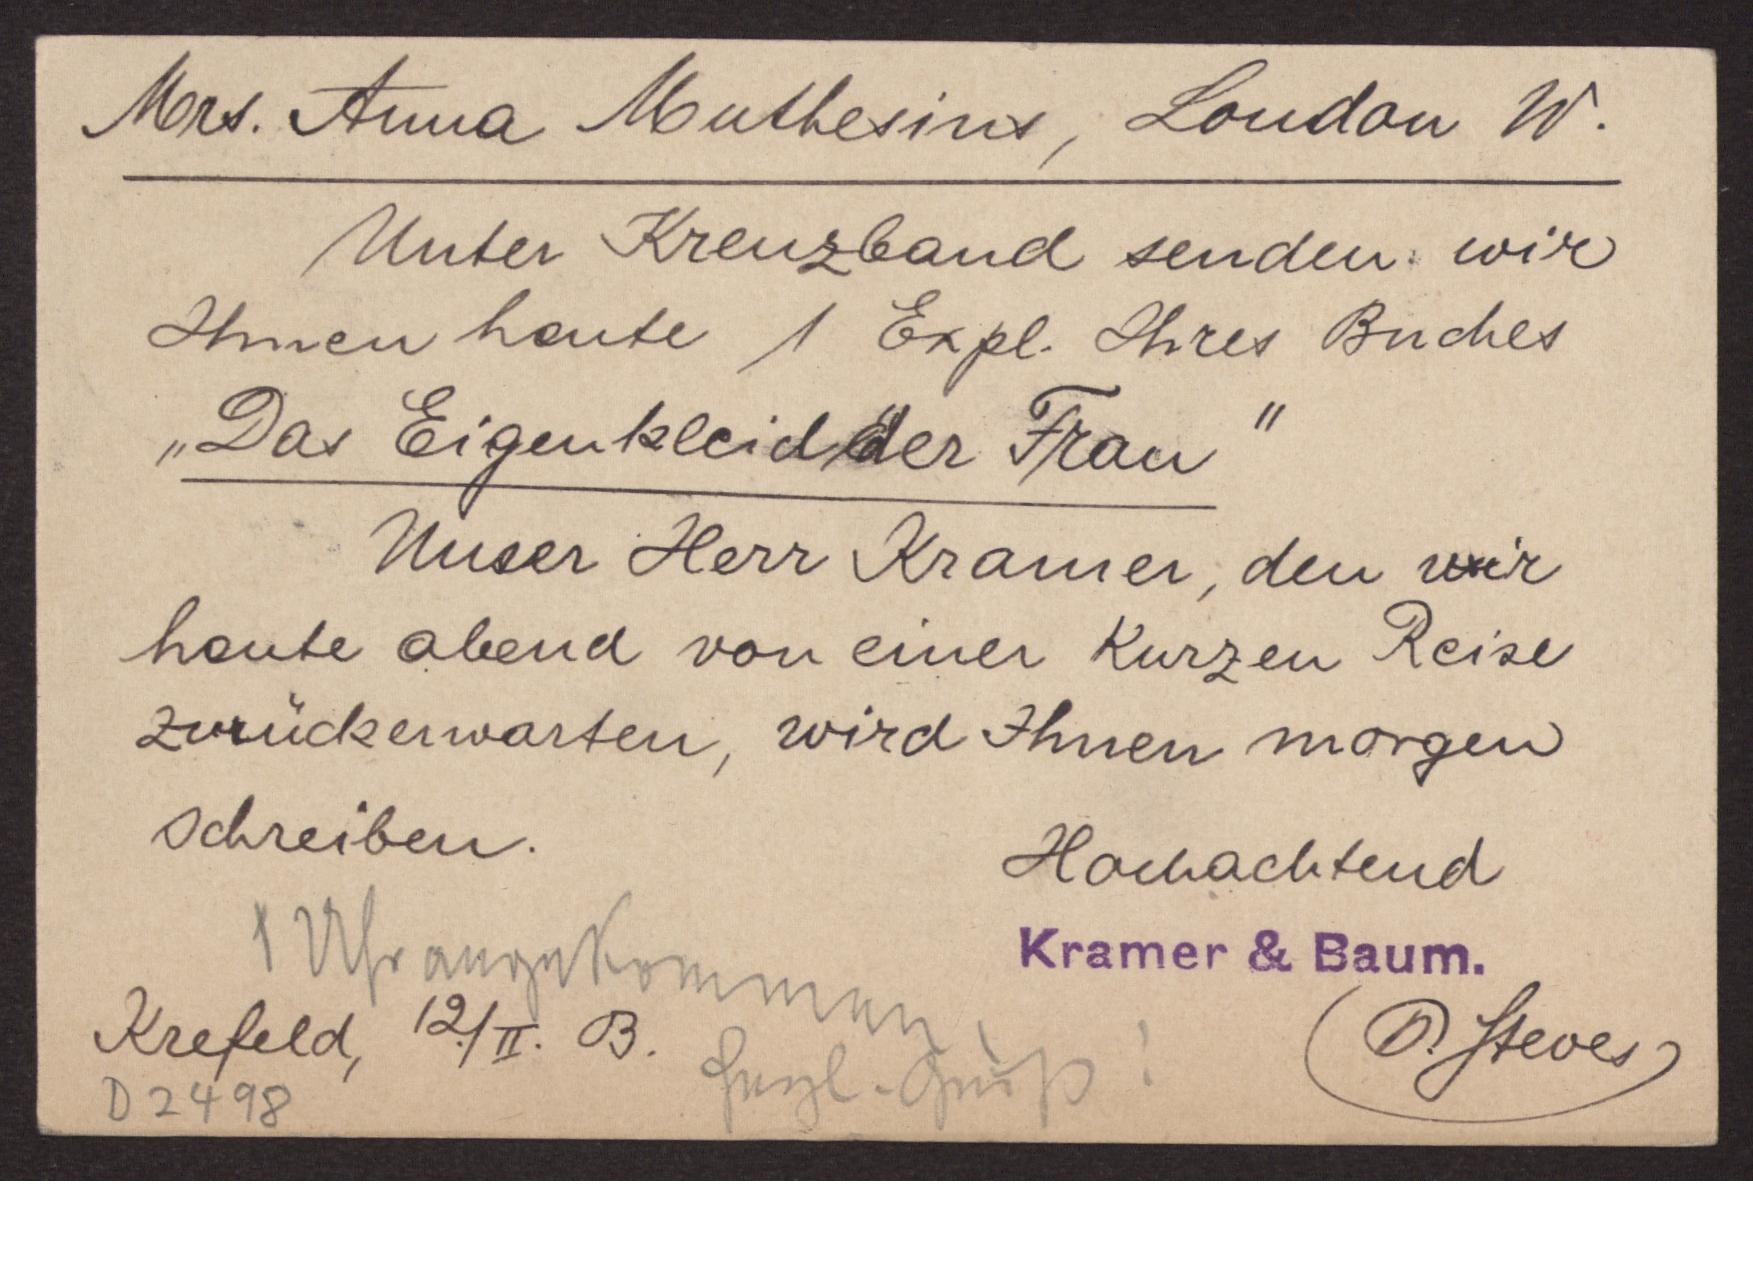 Mrs. Anna Muthesius, London W.
Unter Kreuzband senden wir
Ihnen heute 1 Expl. Ihres Buches
„Das Eigenkleid der Frau"
Unser Herr Kramer, den wir
heute abend von einer kurzen Reise
zurückerwarten, wird Ihnen morgen
schreiben.
Hochachtend
Kramer & Baum.
1 Uhr angekommen,
Krefeld, 12/II. B.
Herzl. Gruß!
D. Steves
D 2498